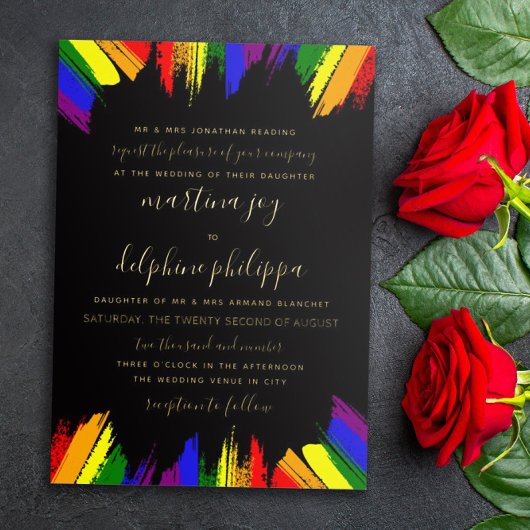 MR & MRS JONATHAN READING
request the pleasure of your company
AT THE WEDDING OF THEIR DAUGHTER
martina joy
TO
delphine philippa
DAUGHTER OF MR & MRS ARMAND BLANCHET
SATURDAY, THE TWENTY SECOND OF AUGUST
two thousand and number
THREE O'CLOCK IN THE AFTERNOON
THE WEDDING VENUE IN CITY
reception to follow